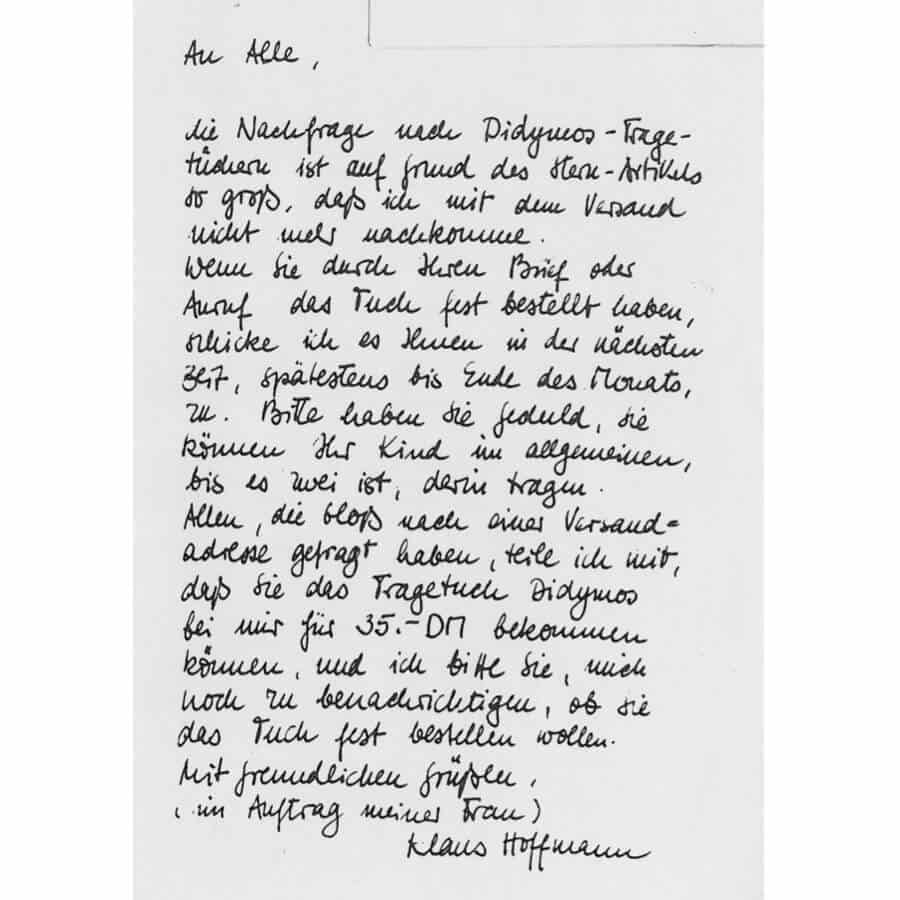 An Alle,
die Nachfrage nach Didymos-Trage-
tüchern ist auf Grund des Stern-Artikels
so groß, daß ich mit dem Versand
nicht mehr nachkomme.
Wenn Sie durch Ihren Brief oder
Anruf das Tuch fest bestellt haben,
schicke ich es Ihnen in der nächsten
Zeit, spätestens bis Ende des Monats,
zu. Bitte haben Sie Geduld, sie
können Ihr Kind im allgemeinen,
bis es zwei ist, darin tragen.
Allen, die bloß nach einer Versand=
adresse gefragt haben, teile ich mit,
daß Sie das Tragetuch Didymos
bei mir für 35.-DM bekommen
können, und ich bitte Sie, mich
noch zu benachrichtigen, ob sie
das Tuch fest bestellen wollen.
Mit freundlichen Grüßen,
(im Auftrag meiner Frau)
Klaus Hoffmann